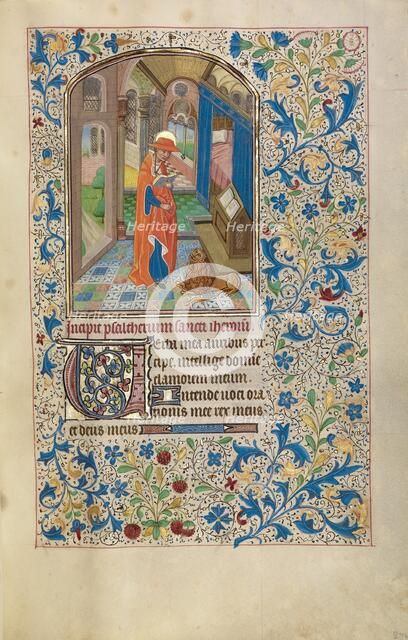 Incipit psalterium sancti iheronimi
Verba mea auribus per
cipe intellige domine
clamorem meum.
Intende voci ora
tionis mee rex meus
et deus meus
Heritage
Heritage
Heritage
Heritage
Heritage